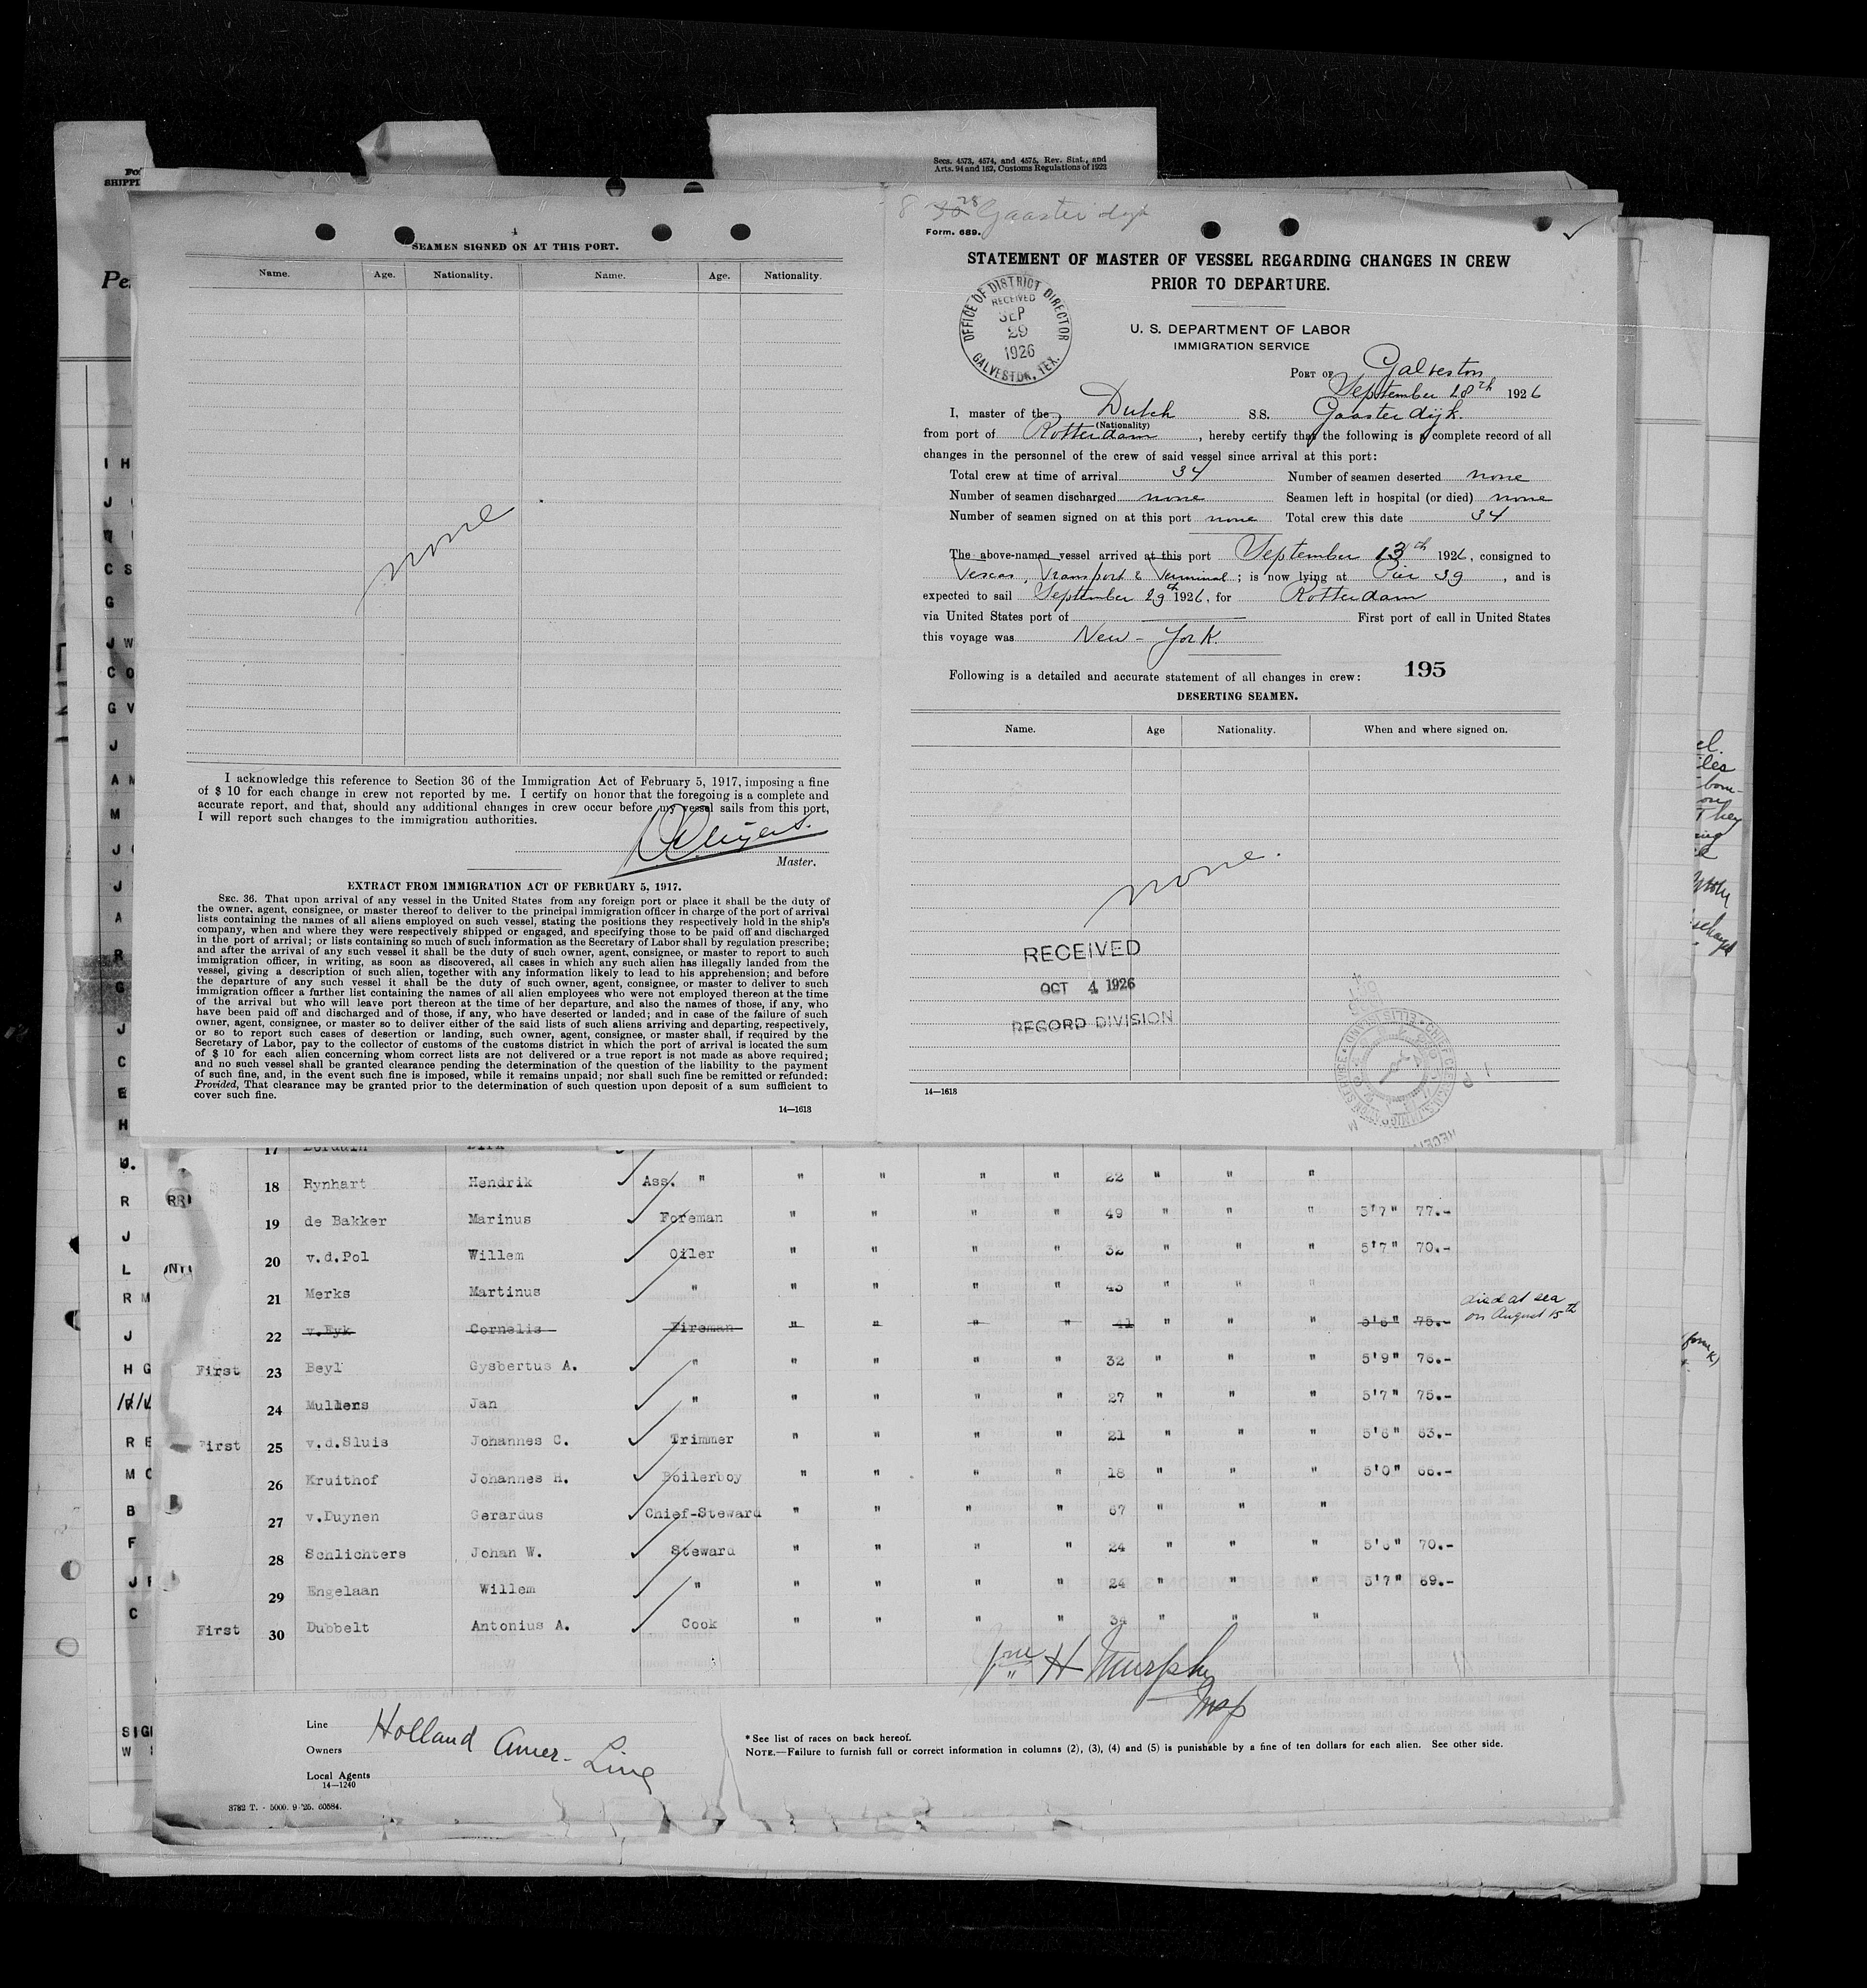 Secs. 4573, 4574, and 4575, Rev. Stat., and
Arts. 94 and 162, Customs Regulations of 1923
SEAMEN SIGNED ON AT THIS PORT.
Name. Age. Nationality. Name. Age. Nationality.
none
I acknowledge this reference to Section 36 of the Immigration Act of February 5, 1917, imposing a fine
of $ 10 for each change in crew not reported by me. I certify on honor that the foregoing is a complete and
accurate report, and that, should any additional changes in crew occur before my vessel sails from this port,
I will report such changes to the immigration authorities.
Master.
EXTRACT FROM IMMIGRATION ACT OF FEBRUARY 5, 1917.
SEC. 36. That upon arrival of any vessel in the United States from any foreign port or place it shall be the duty of
the owner, agent, consignee, or master thereof to deliver to the principal immigration officer in charge of the port of arrival
lists containing the names of all aliens employed on such vessel, stating the positions they respectively hold in the ship's
company, when and where they were respectively shipped or engaged, and specifying those to be paid off and discharged
in the port of arrival; or lists containing so much of such information as the Secretary of Labor shall by regulation prescribe;
and after the arrival of any such vessel it shall be the duty of such owner, agent, consignee, or master to report to such
immigration officer, in writing, as soon as discovered, all cases in which any such alien has illegally landed from the
vessel, giving a description of such alien, together with any information likely to lead to his apprehension; and before
the departure of any such vessel it shall be the duty of such owner, agent, consignee, or master to deliver to such
immigration officer a further list containing the names of all alien employees who were not employed thereon at the time
of the arrival but who will leave port thereon at the time of her departure, and also the names of those, if any, who
have been paid off and discharged and of those, if any, who have deserted or landed; and in case of the failure of such
owner, agent, consignee, or master so to deliver either of the said lists of such aliens arriving and departing, respectively,
or so to report such cases of desertion or landing, such owner, agent, consignee, or master shall, if required by the
Secretary of Labor, pay to the collector of customs of the customs district in which the port of arrival is located the sum
of $ 10 for each alien concerning whom correct lists are not delivered or a true report is not made as above required;
and no such vessel shall be granted clearance pending the determination of the question of the liability to the payment
of such fine, and, in the event such fine is imposed, while it remains unpaid; nor shall such fine be remitted or refunded:
Provided, That clearance may be granted prior to the determination of such question upon deposit of a sum sufficient to
cover such fine.
14—1618
Gaasterdyk
Form. 689.
STATEMENT OF MASTER OF VESSEL REGARDING CHANGES IN CREW
PRIOR TO DEPARTURE.
OFFICE OF DISTRICT DIRECTOR
RECEIVED
SEP
29
1926
GALVESTON, TEX.
U. S. DEPARTMENT OF LABOR
IMMIGRATION SERVICE
PORT OF Galveston
September 28th 1926
I, master of the Dutch S.S. Gaasterdijk.
(Nationality)
from port of Rotterdam, hereby certify that the following is a complete record of all
changes in the personnel of the crew of said vessel since arrival at this port:
Total crew at time of arrival 34 Number of seamen deserted none
Number of seamen discharged none Seamen left in hospital (or died) none
Number of seamen signed on at this port none Total crew this date 34
The above-named vessel arrived at this port September 13th 1926, consigned to
Texas, Transport & Terminal; is now lying at Pier 39, and is
expected to sail September 29th 1926, for Rotterdam
via United States port of First port of call in United States
this voyage was New-York.
Following is a detailed and accurate statement of all changes in crew: 195
DESERTING SEAMEN.
Name. Age Nationality. When and where signed on.
none.
RECEIVED
OCT 4 1926
RECORD DIVISION
14—1618
18 Rynhart Hendrik Ass. " " " " " 22 " " "
19 de Bakker Marinus Foreman " " " " 49 " " " 5'7" 77.-
20 v.d.Pol Willem Oiler " " " " 32 " " " 5'7" 70.-
21 Merks Martinus " " " " " 43 " " "
22 v.Eyk Cornelis Fireman " " " " 41 " " " 5'6" 75.- died at sea
on August 15th
First 23 Beyl Gysbertus A. " " " " " 32 " " " 5'9" 75.-
24 Mullens Jan " " " " " 27 " " " 5'7" 75.-
First 25 v.d.Sluis Johannes C. Trimmer " " " " 21 " " " 5'6" 63.-
26 Kruithof Johannes H. Boilerboy " " " " 18 " " " 5'0" 66.-
27 v.Duynen Gerardus Chief-Steward " " " " 67 " " "
28 Schlichters Johan W. Steward " " " " 24 " " " 5'6" 70.-
29 Engelaan Willem " " " " " 24 " " " 5'7" 69.-
First 30 Dubbelt Antonius A. Cook " " " " 34 " " "
H Murphy
Line Holland Amer- Line
Owners
Local Agents
14—1240
3782 T. - 5000. 9-'25. 60584.
* See list of races on back hereof.
NOTE.—Failure to furnish full or correct information in columns (2), (3), (4) and (5) is punishable by a fine of ten dollars for each alien. See other side.